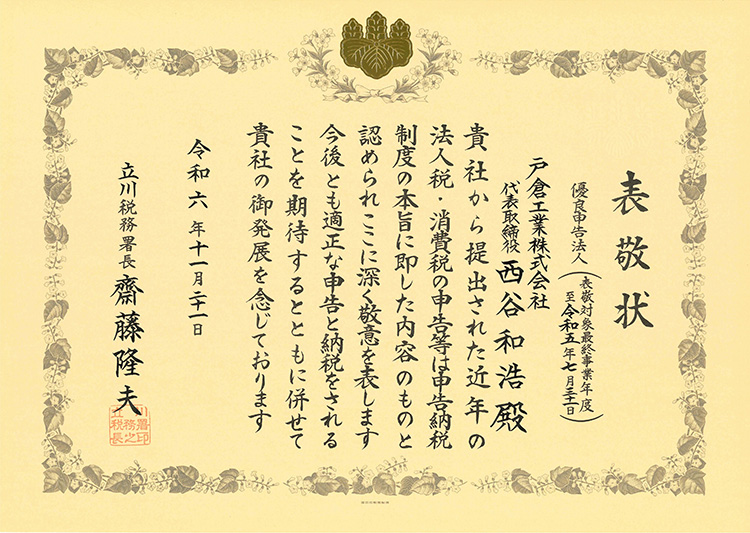 表敬状
優良申告法人
(表敬対象最終事業年度
至令和五年七月三十一日)
戸倉工業株式会社
代表取締役 西谷和浩殿
貴社から提出された近年の
法人税・消費税の申告等は申告納税
制度の本旨に即した内容のものと
認められここに深く敬意を表します
今後とも適正な申告と納税をされる
ことを期待するとともに併せて
貴社の御発展を念じております
令和六年十一月二十一日
立川税務署長 齋藤隆夫
立川税務署長之印